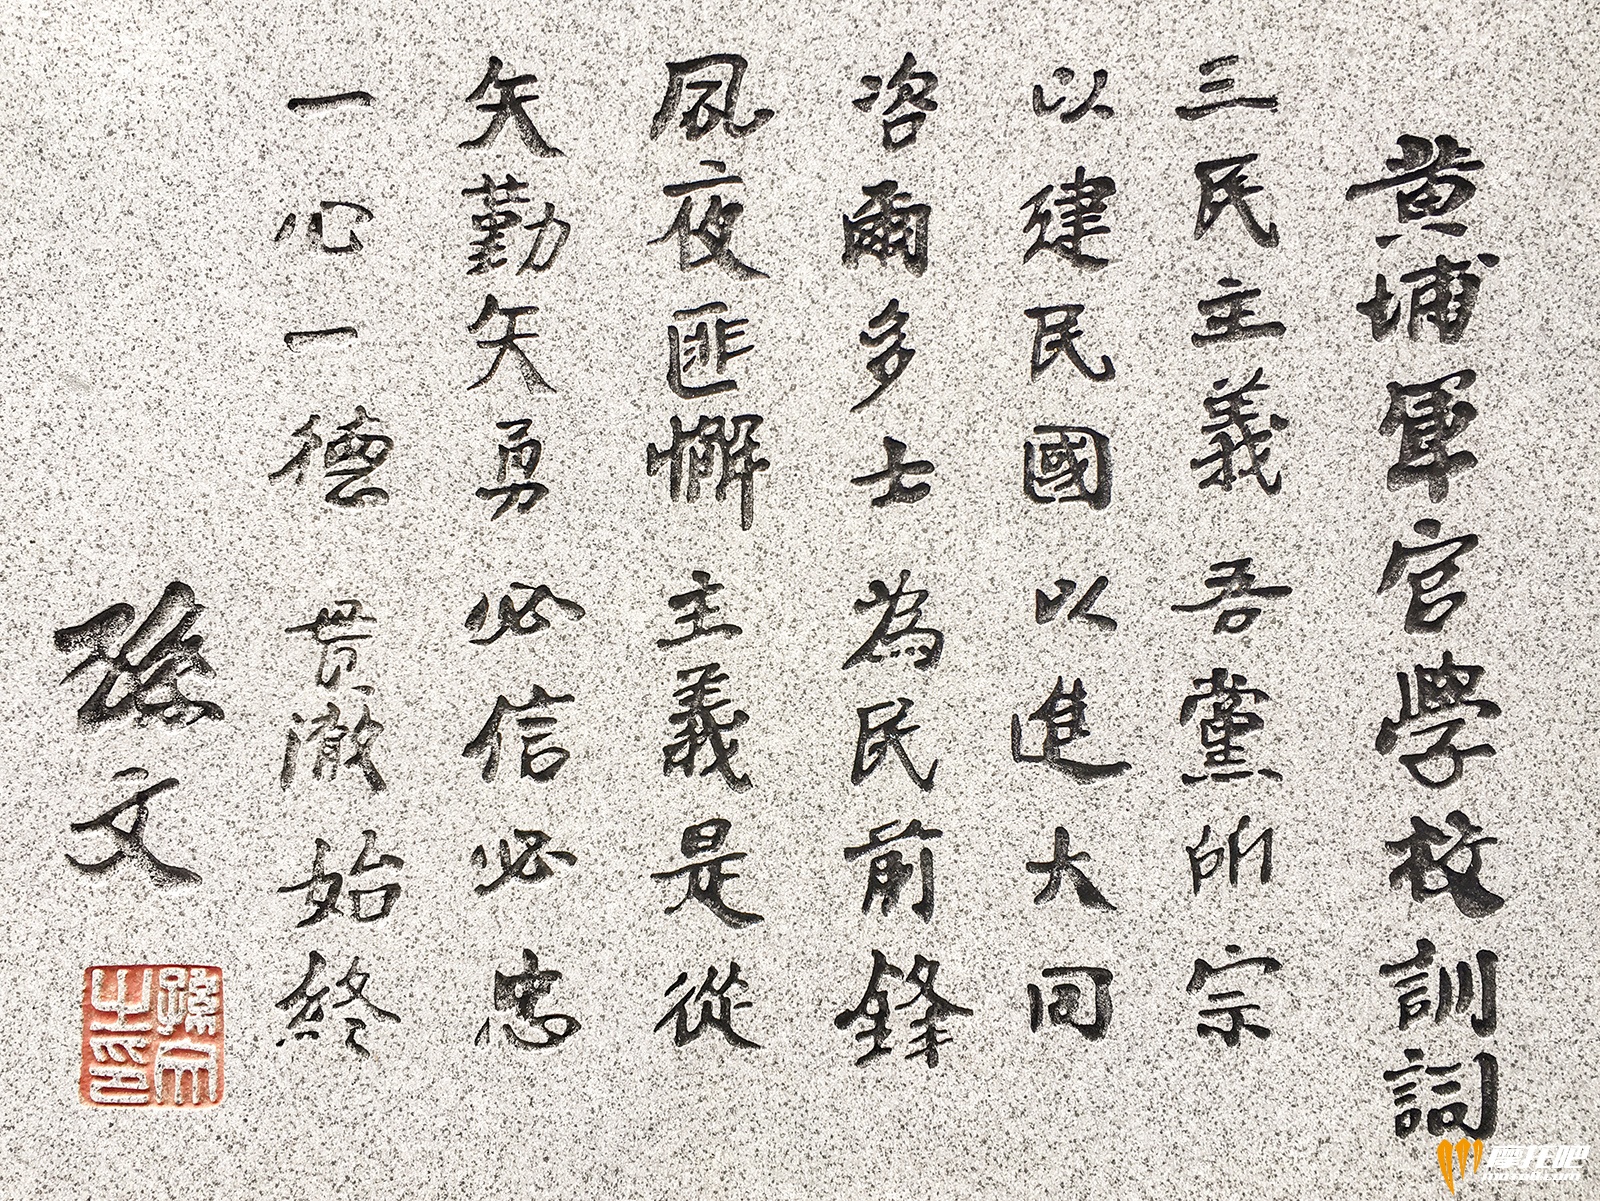 黄埔軍官学校訓詞
三民主義 吾黨所宗
以建民國 以進大同
咨爾多士 為民前鋒
夙夜匪懈 主義是從
矢勤矢勇 必信必忠
一心一德 貫澈始終
孫文
孫文之印
摩托吧